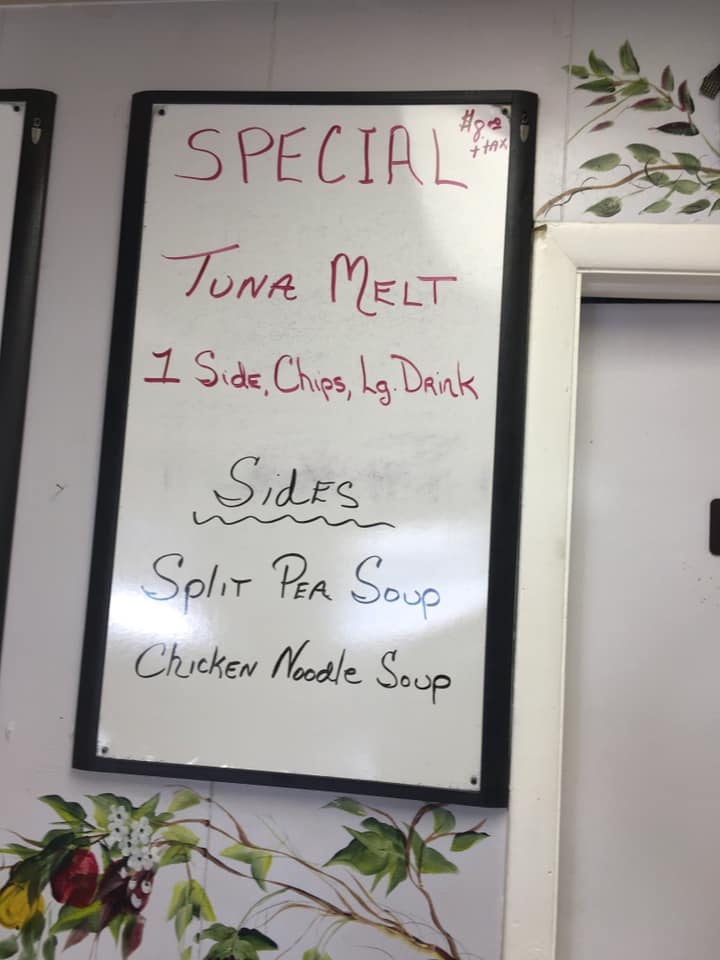 SPECIAL
+ TAX
TUNA MELT
1 Side, Chips, Lg. Drink
Sides
Split Pea Soup
Chicken Noodle Soup